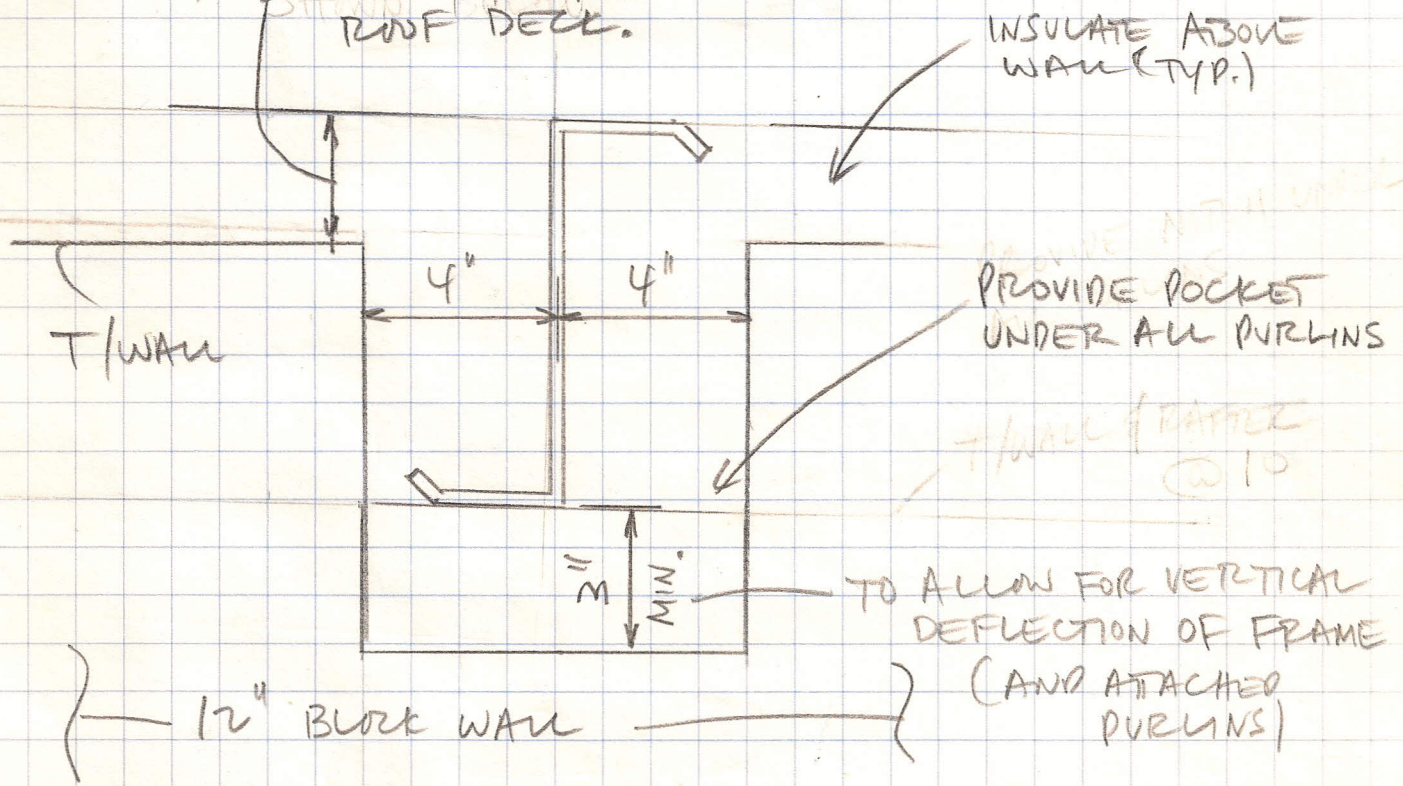 ROOF DECK.
INSULATE ABOVE
WALL (TYP.)
4" 4"
T/WALL
PROVIDE POCKET
UNDER ALL PURLINS
T/WALL & RAFTER
@ 10
3"
MIN.
TO ALLOW FOR VERTICAL
DEFLECTION OF FRAME
(AND ATTACHED
PURLINS)
12" BLOCK WALL